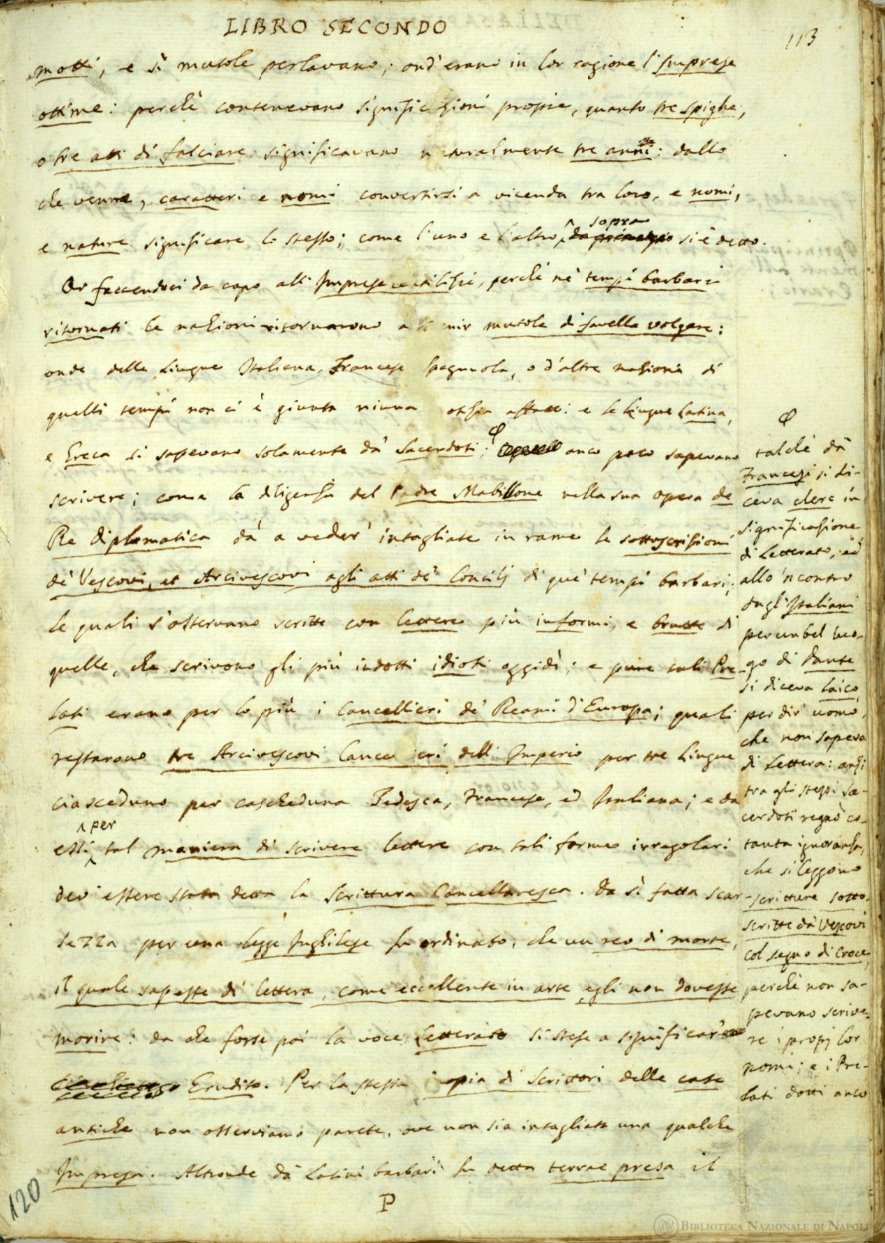 LIBRO SECONDO
113
motti, e sì mutole parlavano; ond'erano in lor ragione l'Imprese
ottime: perchè contenevano significazioni propie, quanto tre spighe,
o tre atti di falciare significavano naturalmente tre anni: dallo
che venne, caratteri e nomi convertirsi a vicenda tra loro, e nomi,
e nature significare lo stesso; come l'uno e l'altro sopra si è detto.
Or faccendoci da capo all'Imprese Nobili, perchè ne' tempi barbari
ritornati le nazioni ritornarono a divenir mutole di favella volgare;
onde delle Lingue Italiana, Francese Spagnuola, o d'altre nazioni di
quelli tempi non ci è giunta niuna notizia affatto: e le Lingue Latina,
e Greca si sapevano solamente da' Sacerdoti; φ anco poco sapevano
scrivere; come la diligenza del Padre Mabillone nella sua opera de
Re Diplomatica dà a veder' intagliate in rame le sottoscrizioni
de' Vescovi, et Arcivescovi agli atti de' Concilj di que' tempi barbari;
le quali s'osservano scritte con lettere più informi, e brutte di
quelle, che scrivono gli più indotti idioti oggidì; e pure tali Pre-
lati erano per lo più i Cancellieri de' Reami d'Europa; quali
restarono tre Arcivescovi Cancellieri dell'Imperio per tre Lingue
ciascheduno per cascheduna Tedesca, Francese, ed Italiana; e da
essi per tal maniera di scrivere lettere con tali forme irregolari
dev'essere stata detta la Scrittura Cancellaresca. Da sì fatta scar-
sezza per una legge Inghilese fu ordinato, che un reo di morte,
il quale sapesse di lettera, come eccellente in arte egli non dovesse
morire: da che forse poi la voce Letterato si stese a significar
Erudito. Per la stessa inopia di Scrittori delle case
antiche non osserviamo parete, ove non sia intagliata una qualche
Impresa. Altronde da' Latini barbari fu detta terrae presa il
P
φ
talchè da'
Francesi si di-
ceva clerc in
significazione
di Letterato, ed
allo 'ncontro
dagl'Italiani
per un bel luo-
go di Dante
si diceva laico
per dir' uomo,
che non sapeva
di Lettera: anzi
tra gli stessi Sa-
cerdoti regnò co-
tanta ignoranza,
che si leggono
scritture sotto-
scritte da' Vescovi
col segno di Croce,
perchè non sa-
pevano scrive-
re i propj lor
nomi; e i Pre-
lati dotti anco
120
BIBLIOTECA NAZIONALE DI NAPOLI